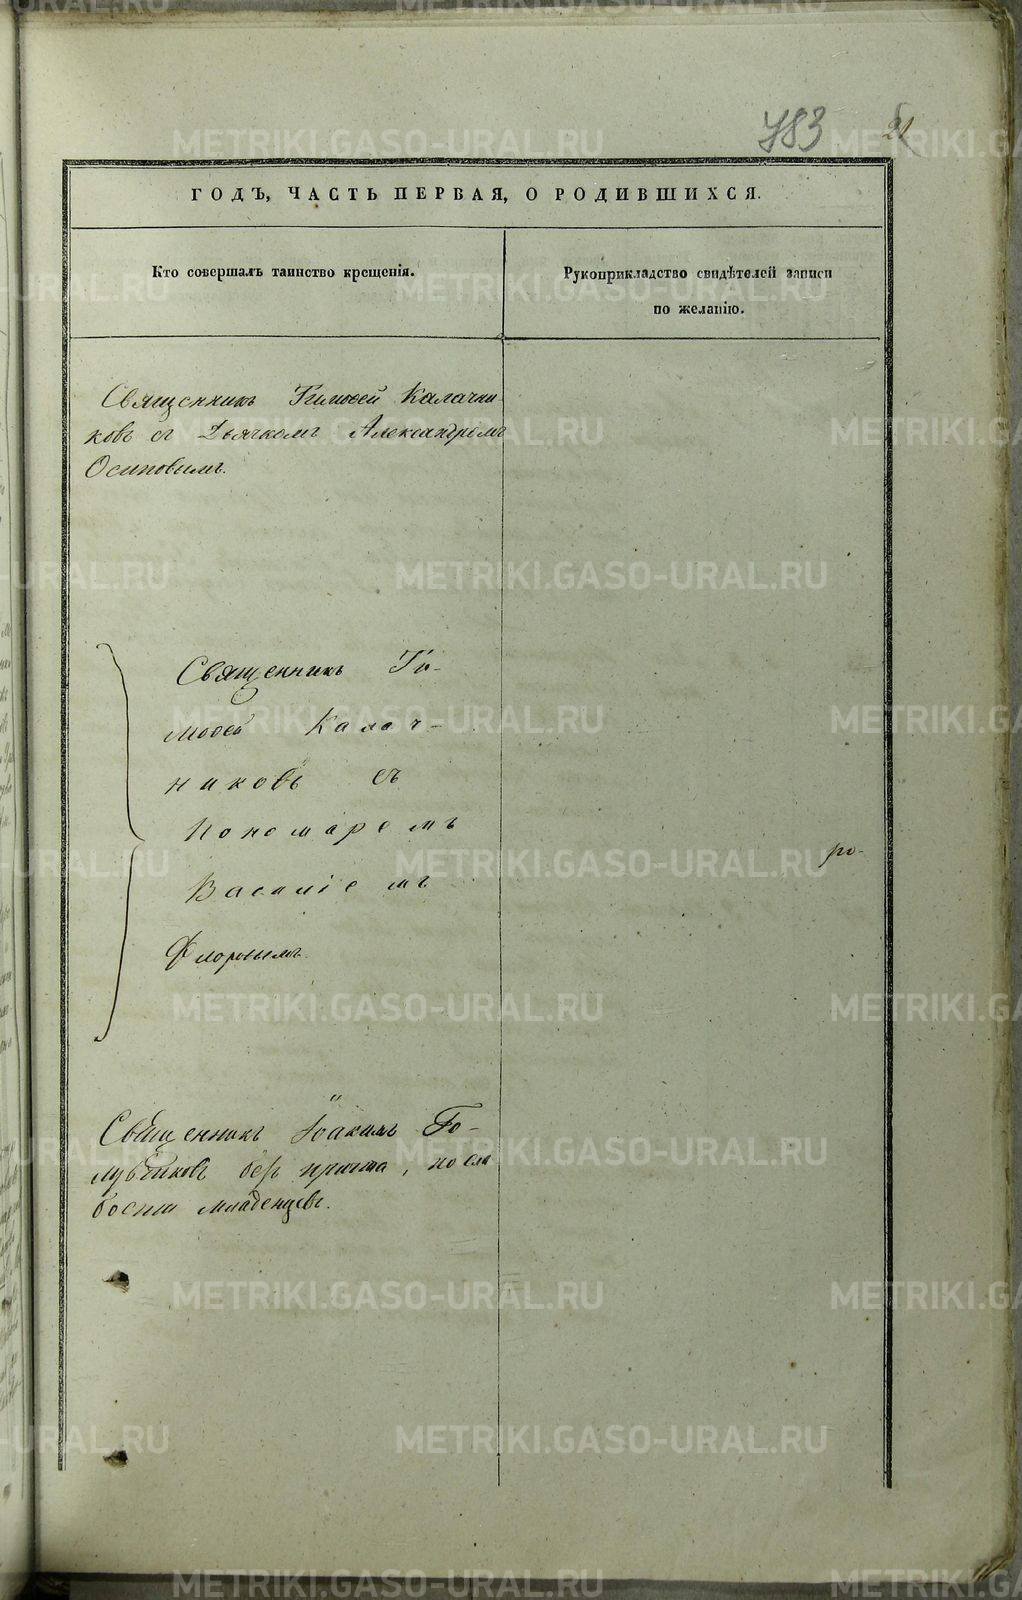 783
21
ГОДЪ, ЧАСТЬ ПЕРВАЯ, О РОДИВШИХСЯ.
Кто совершалъ таинство крещенія.
Рукоприкладство свидѣтелей записи
по желанію.
Священникъ Тимофей Калачни-
ковъ съ Дьячкомъ Александромъ
Осиповымъ.
Священникъ Ти-
мофей Калач-
никовъ съ
Пономаремъ
Василіемъ
Флоровымъ.
ро-
Священникъ Іоакимъ Го-
лубчиковъ безъ причта, по сла
бости младенцевъ.
METRIKI.GASO-URAL.RU